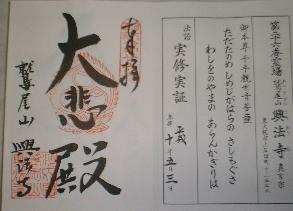 第二十六番霊場 鷲尾山 興法寺 真言宗
御本尊 千手観世音菩薩
ただたのめ しめじがはらの さしもぐさ
わしをのやまの あらんかぎりは
法語 実修実証
平成 十年五月三日
奉拝
大悲殿
鷲尾山 興法寺